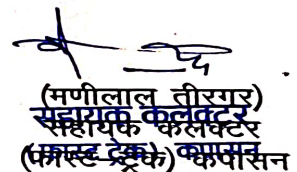 (मणीलाल तीरगर)
सहायक कलक्टर
सहायक कलक्टर
(फास्ट ट्रेक) कपासन
(फास्ट ट्रेक) कपासन